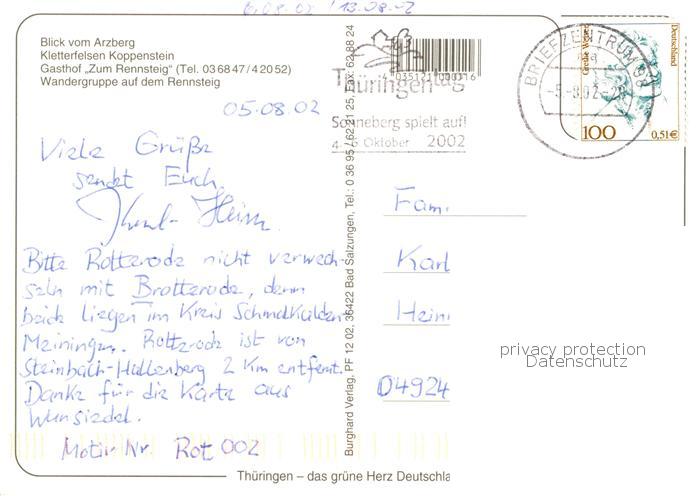 6.08.02 / 13.08.02
Blick vom Arzberg
Kletterfelsen Koppenstein
Gasthof „Zum Rennsteig“ (Tel. 03 68 47 / 4 20 52)
Wandergruppe auf dem Rennsteig
05.08.02
Viele Grüße
sendet Euch
Bitte Rotterode nicht verwech-
seln mit Brotterode, denn
beide liegen im Kreis Schmalkalden
Meiningen. Rotterode ist von
Steinbach-Hallenberg 2 Km entfernt.
Danke für die Karte aus
Wunsiedel.
Motiv Nr. Rot 002
Burghard Verlag, PF 12 02, 36422 Bad Salzungen, Tel.: 0 36 95 / 62 21 25, Fax: 62 88 24
4 035121 000316
Thüringentag
Sonneberg spielt auf!
4.-6. Oktober 2002
BRIEFZENTRUM 98
-5.-8.02-20
Deutschland
100
0,51€
Fam.
Karl
Hein
04924
privacy protection
Datenschutz
Thüringen – das grüne Herz Deutschla